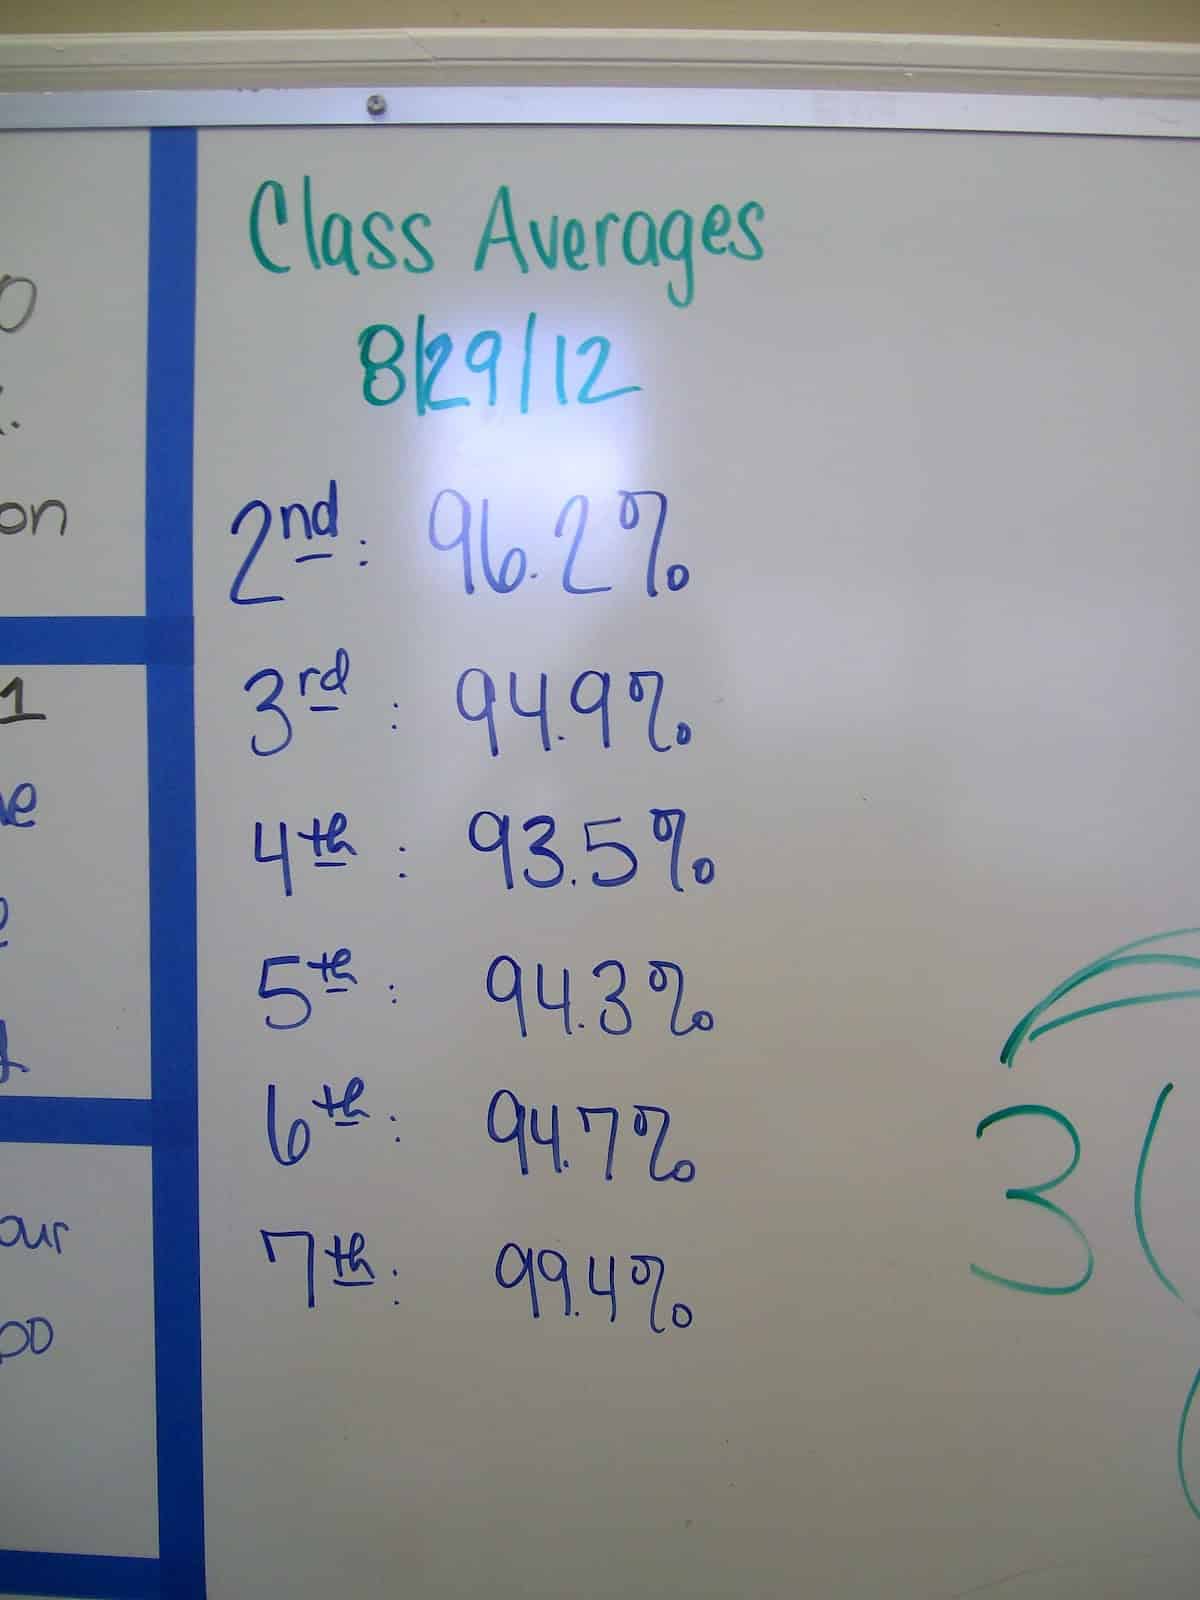 Class Averages
8/29/12
2nd: 96.2%
3rd: 94.9%
4th: 93.5%
5th: 94.3%
6th: 94.7%
7th: 99.4%
on
1
our
3(